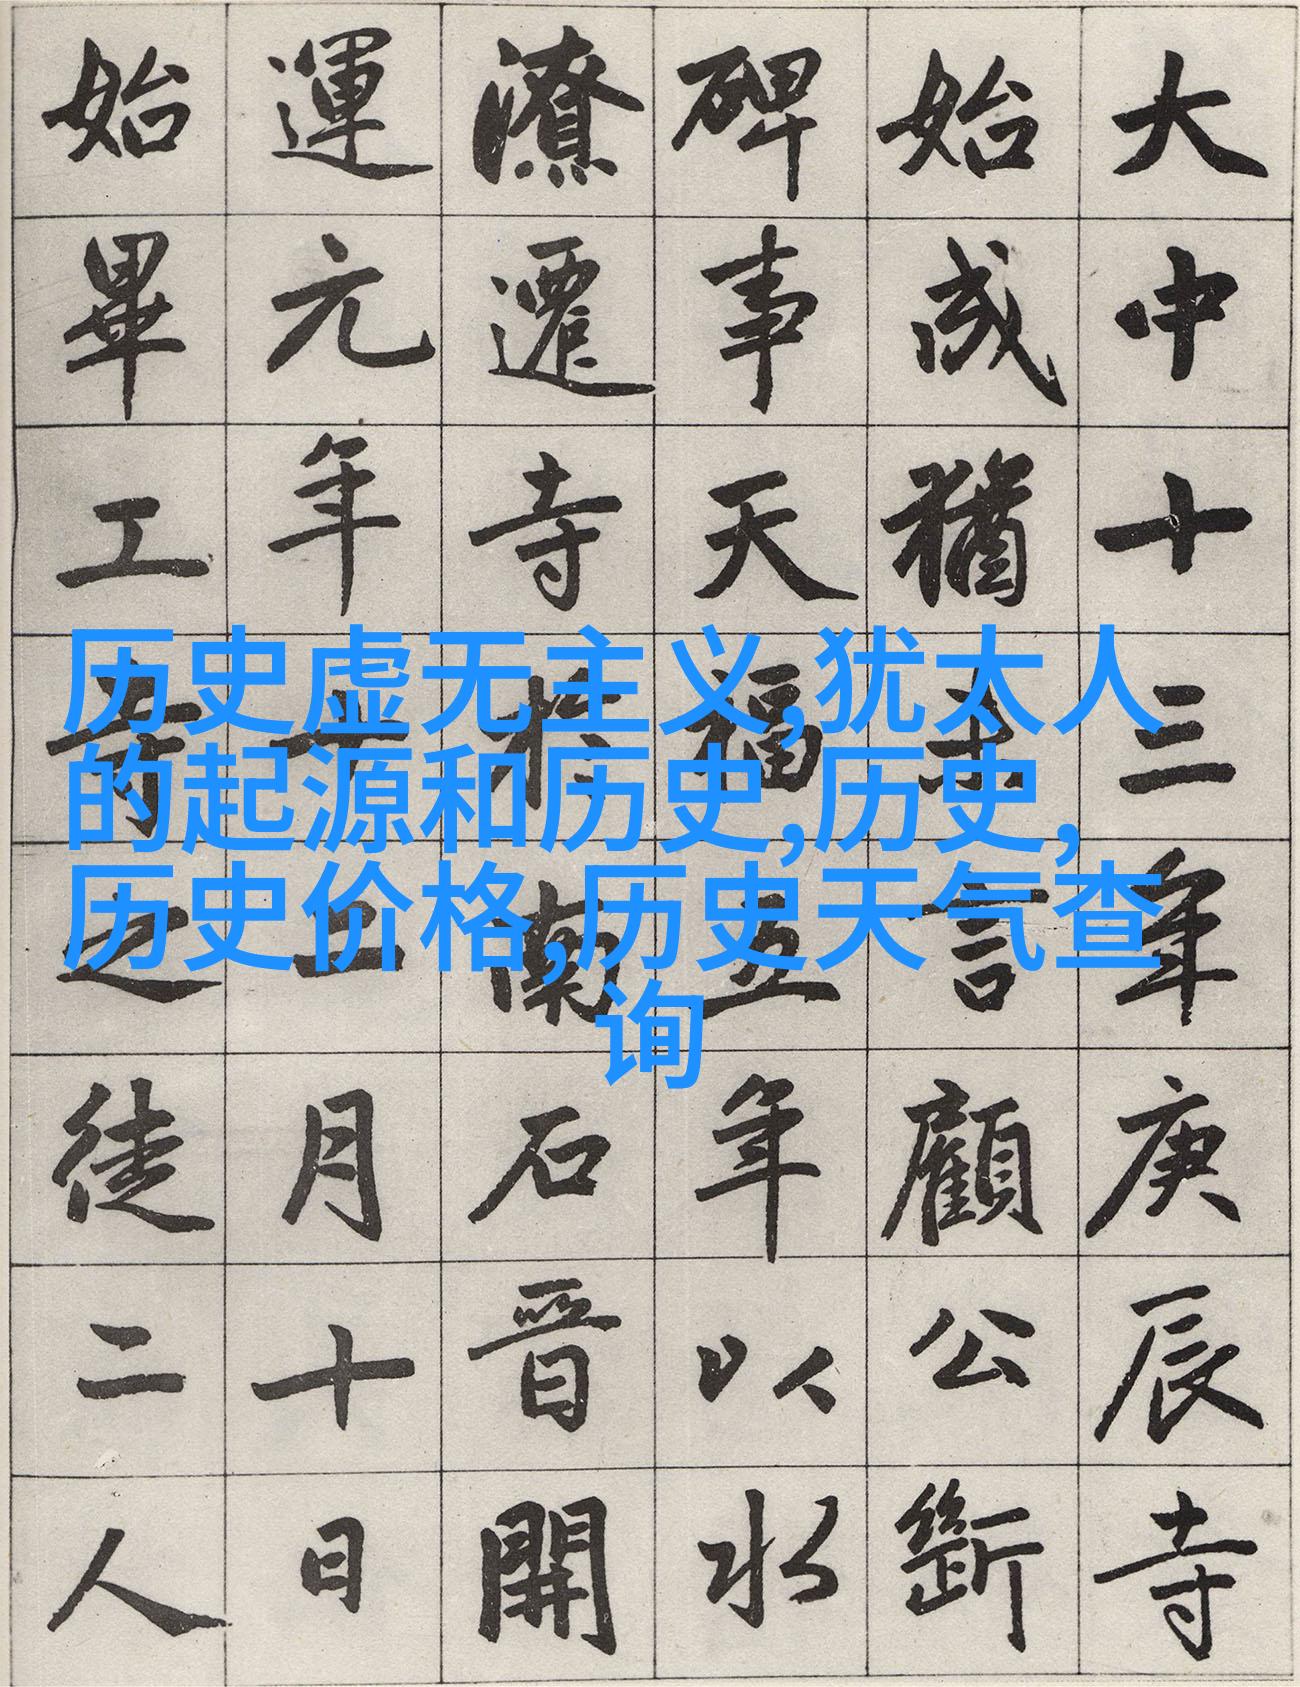 历史虚无主义,犹太人
的起源和历史,历史,
历史价格,历史天气查
询
大中十三年庚辰寺
始成猶未言顧公斷
碑事天福五年以水
潦遷寺扵南石晉開
運元年十月十日
始畢工之徒二人